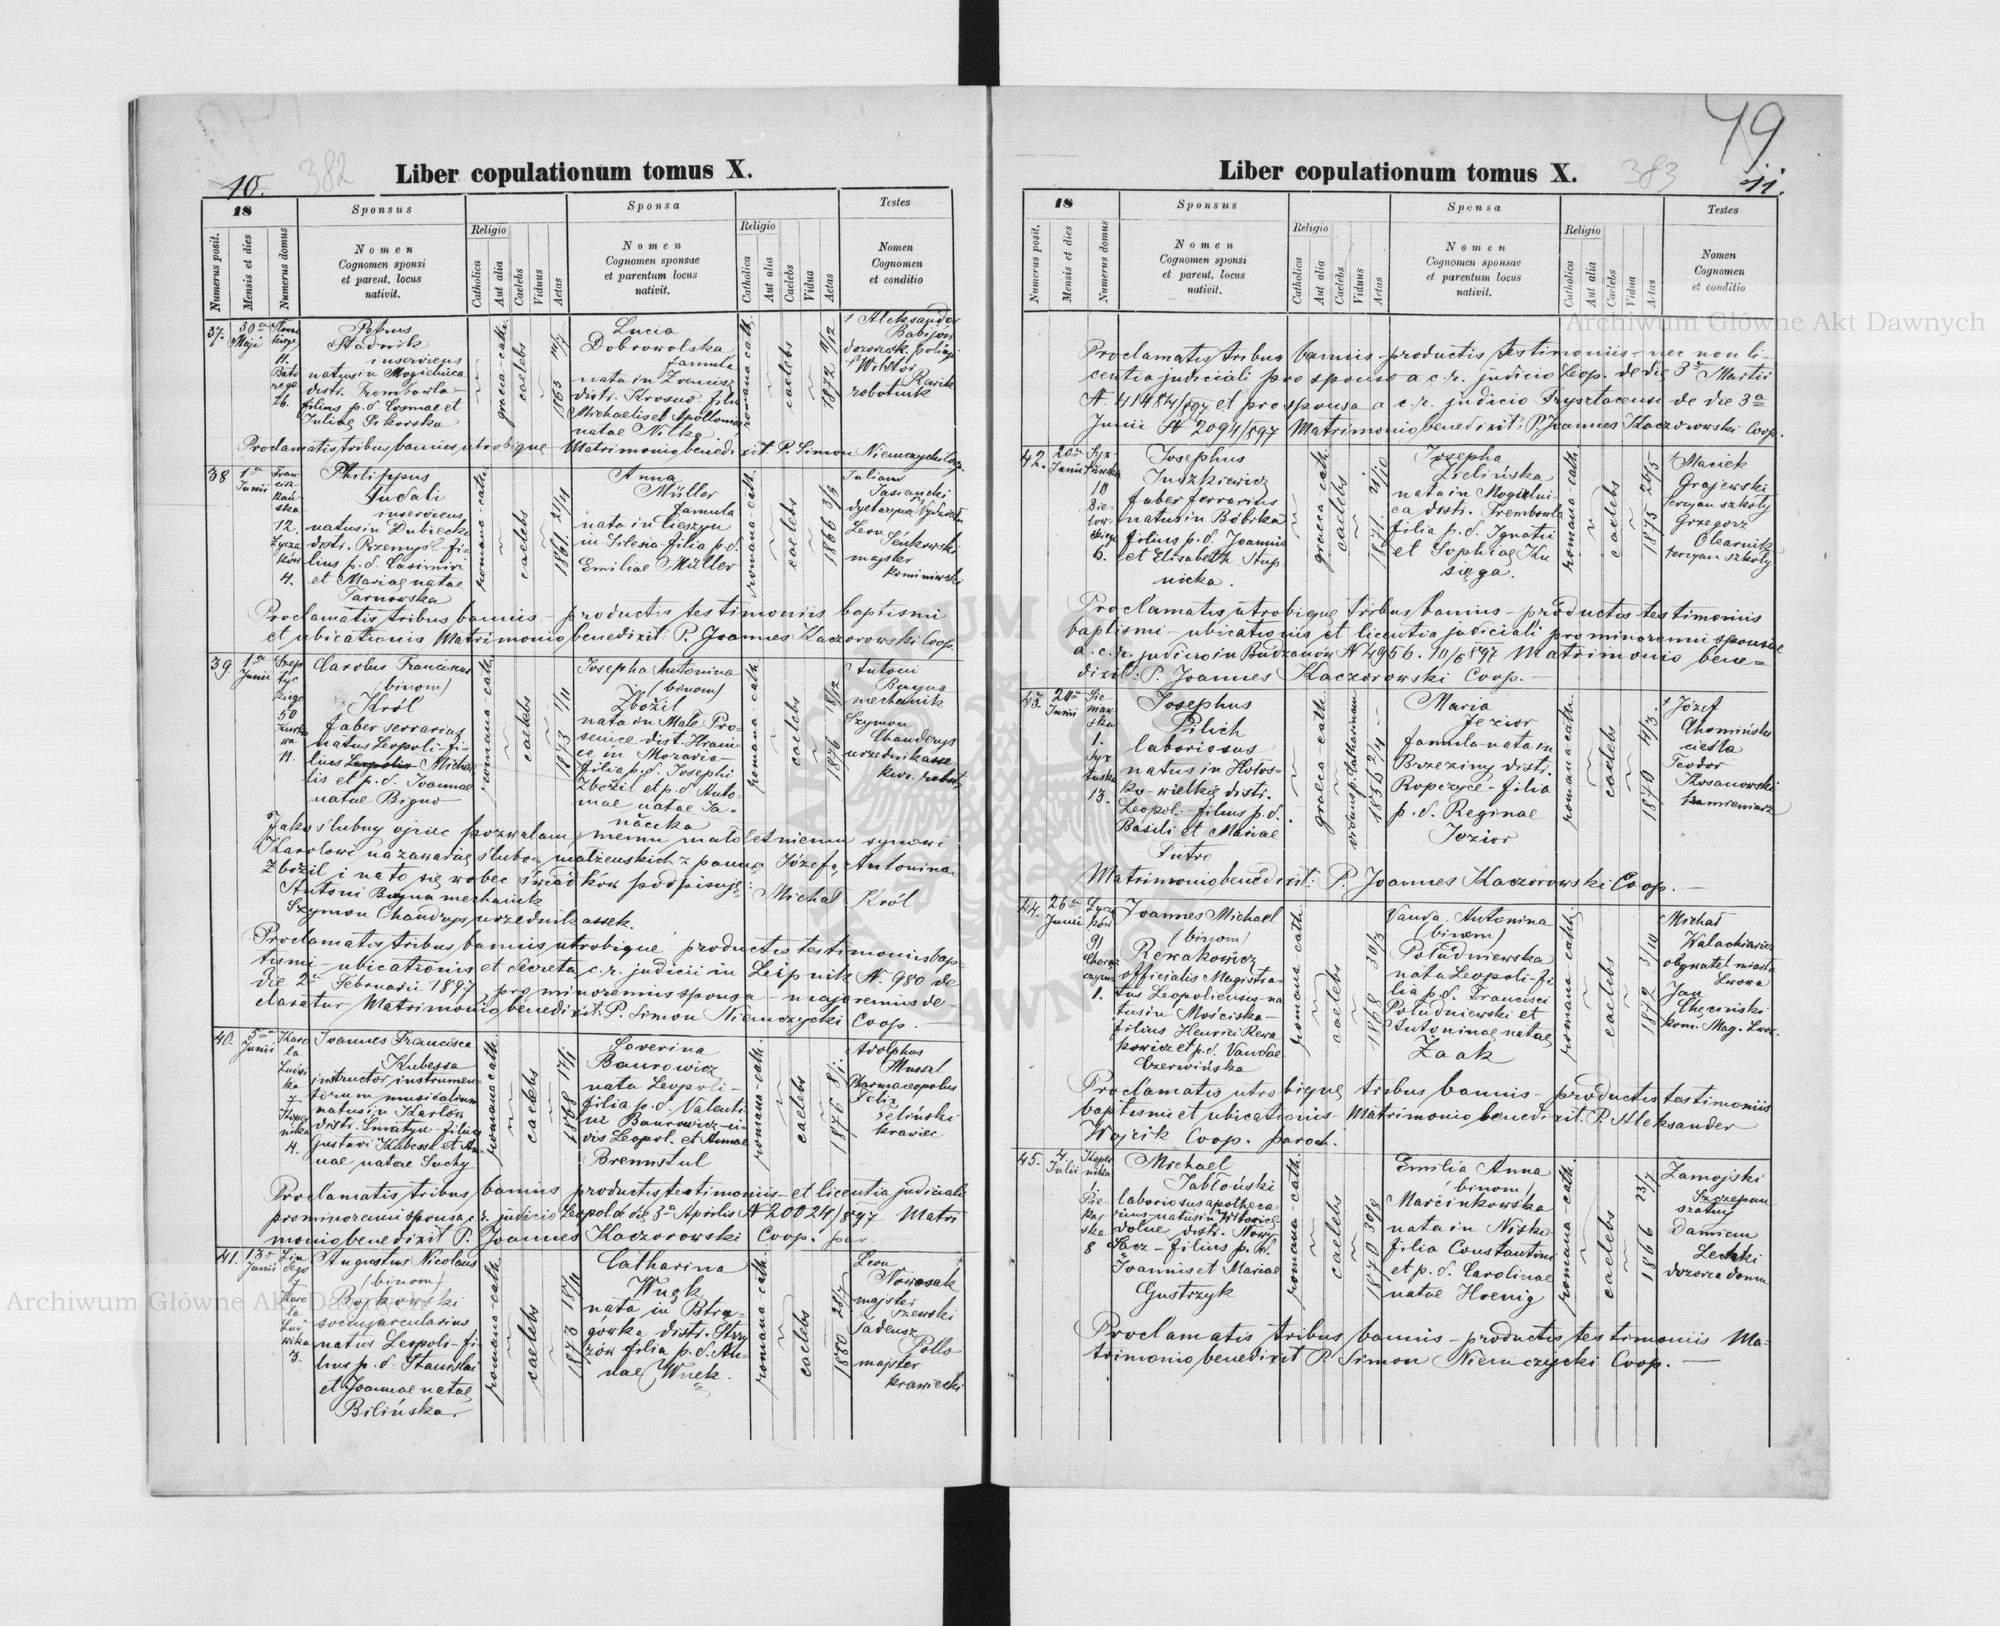 10.
382
Liber copulationum tomus X.
18
Sponsus
Sponsa
Testes
Numerus posit.
Mensis et dies
Numerus domus
Nomen
Cognomen sponsi
et parent. locus
nativit.
Religio
Catholica
Aut alia
Caelebs
Viduus
Aetas
Nomen
Cognomen sponsae
et parentum locus
nativit.
Religio
Catholica
Aut alia
Caelebs
Vidua
Aetas
Nomen
Cognomen
et conditio
37.
30a
Maji
11.
Petrus
Stadnik
inserviens
natus in Mogielnica
distr. Trembowla
filius p.d. Cosmae et
Juliae Sikorska
graeca-cath.
caelebs
Lucia
Dobrowolska
famula
nata in
distr. Krosno filia
Michaelis et Apolloniae
natae Nitka
romana-cath.
caelebs
1872 11/12
† Aleksander
Babijów
† Wiktor
Rawik
robotnik
Proclamatis tribus bannis utrobique Matrimonio benedixit P. Simon Niemczycki Coop.
38
1a
Junii
Fran
cisz-
kań-
ska
12.
Łycza
ków
4.
Philippus
Judali
inserviens
natus in Dubiecko
distr. Przemyśl fi-
lius p.d. Casimiri
et Mariae natae
Tarnowska
romana-cath.
caelebs
1861 21/4
Anna
Müller
famula
nata in Cieszyn
in Silesia filia p.d.
Emiliae Müller
romana-cath.
caelebs
1866 3/3
Julian
Leon
Sękowski
majster
kominiarski
Proclamatis tribus bannis - productis testimoniis baptismi
et ubicationis Matrimonio benedixit: P. Joannes Kaczorowski Coop.
39
1a
Junii
Szep
tyc
kiego
50
11.
Carolus Franciscus
(binom)
Król
faber serrarius
natus Leopoli - fi-
lius Micha-
lis et p.d. Joannae
natae Bigus
romana-cath.
caelebs
1873 1/11
Josepha Antonina
(binom)
Zbożil
nata in Małe Pro-
senice dist. Hrani-
ce in Moravia
filia p.d. Josephi
Zbożil et p.d. Anto-
niae natae Ja-
načcka
romana-cath.
caelebs
1876 18/12
Antoni
Bugna
mechanik
Szymon
Chandrys
Jako ślubny ojciec pozwalam memu małoletniemu synowi
Karolowi na zawarcie ślubów małżeńskich z panną Józefą Antoniną
Zbożil i na to się wobec świadków podpisuję: Michał Król
Antoni Bugna mechanik
Szymon Chandrys urzędnik assek.
Proclamatis tribus bannis utrobique productis testimoniis bap-
tismi - ubicationis et decreto c.r. judicii in Leipnik N. 980 de
die 2a Februarii 1897 pro minorennis sponsa - majorennis de-
claratur Matrimonio benedixit: P. Simon Niemczycki Coop. -
40.
5a
Junii
Karo
la
Ludwi
ka
7
4.
Joannes Francisca
Kubessa
instructor instrumen-
torum musicalium
natus in Karłów
distr. Śniatyn - filius
Gustavi Kubessa et An-
nae natae Suchy
romana cath.
caelebs
1868 17/1
Severina
Baurowicz
nata Leopoli -
filia p.d. Valenti-
ni Baurowicz - ci-
vis Leopol. et Annae
Brennstul
romana-cath.
caelebs
1876 8/1
Adolphus
Mussal
Pharmaceopolus
Felix
Feliński
krawiec
Proclamatis tribus bannis productis testimoniis - et licentia judiciali
pro minorenni sponsa c.r. judicio Leopol. de die 3a Aprilis N 20024/897 Matri
monio benedixit P. Joannes Kaczorowski Coop. par.
41.
13a
Junii
Lin
dego
7
Karo
la
Lud
wika
3.
Augustus Nicolaus
(binom)
Bojkowski
socius arcularius
natus Leopoli - fi-
lius p.d. Stanislai
et Joannae natae
Bilińska.
romana-cath.
caelebs
1873 18/11
Catharina
Wnęk
nata in Bträ-
gówka distr. Strzy
żów filia p.d. An-
nae Wnek.
romana-cath.
caelebs
1880 28/7
Leon
Nowosak
majster
szewski
Tadeusz
Pollo
majster
krawiecki
79
383
11.
Liber copulationum tomus X.
18
Sponsus
Sponsa
Testes
Numerus posit.
Mensis et dies
Numerus domus
Nomen
Cognomen sponsi
et parent. locus
nativit.
Religio
Catholica
Aut alia
Caelebs
Viduus
Aetas
Nomen
Cognomen sponsae
et parentum locus
nativit.
Religio
Catholica
Aut alia
Caelebs
Vidua
Aetas
Nomen
Cognomen
et conditio
Archiwum Główne Akt Dawnych
Proclamatis tribus bannis - productis testimoniis - nec non li-
centia judiciali pro sponso a c.r. judicio Leop. de die 3a Martii
N. 41484/897 et pro sponsa a c.r. judicio Frysztacensi de die 3a
Junii N 2094/897 Matrimonio benedixit: P. Joannes Kaczorowski Coop.
42.
20a
Junii
10
6.
Josephus
Juszkiewicz
faber ferrarius
natus in Bóbrka
filius p.d. Joannis
et Elisabeth Stup
nicka.
graeca-cath.
caelebs
1871 21/10
Josepha
Zielińska
nata in Mogielni-
ca distr. Trembowla
filia p.d. Ignatii
et Sophiae Ku
sięga.
romana-cath.
caelebs
1875 26/5
† Maciek
Grajewski
tercyan szkoły
Grzegorz
Olearnik
tercyan szkoły
Proclamatis utrobique tribus bannis - productis testimoniis
baptismi - ubicationis et licentia judiciali pro minorenni sponsa
a c.r. judicio in Budzanów N 4956. 10/6 897 Matrimonio bene=
dixit: P. Joannes Kaczorowski Coop. -
43.
20a
Junii
Sie-
niaw-
ska
1.
Syx
tuska
13.
Josephus
Pilich
laboriosus
natus in Hołos-
ko-wielkie distr.
Leopol. filius p.d.
Basili et Mariae
Futro
graeca-cath.
viduus p. Catharinam
1856 2/4
Maria
Jezior
famula-nata in
Brzeziny distr.
Ropczyce - filia
p.d. Reginae
Jezior
romana-cath.
caelebs
1870 4/3
† Józef
Chomiński
cieśla
Teodor
Kosanowski
kamieniarz
Matrimonio benedixit: P. Joannes Kaczorowski Coop. -
44.
26a
Junii
Łycza
ków
91
1.
Joannes Michael
(binom)
Rewakowicz
officialis Magistra-
tus Leopoliensis-na
tus in Mościska-
filius Henrici Rewa
kowicz et p.d. Vandae
Czerwińska
romana-cath.
caelebs
1868 30/3
Vanda Antonina
(binom)
Południewska
nata Leopoli-fi-
lia p.d. Francisci
Południewski et
Antoninae natae
Zaak
romana cath.
caelebs
1872 3/10
Michał
Walachiewicz
obywatel miasta
Lwowa
Jan
Chęciński
kom. Mag. Lwow.
Proclamatis utrobique tribus bannis - productis testimoniis
baptismi et ubicationis - Matrimonio benedixit P. Aleksander
Wojcik Coop. paroch.
45.
4.
Julii
Koper
nika
1.
Pie-
kar
ska
8
Michael
Jabłoński
laboriosus apotheca-
rius-natus in Witowice
dolne distr. Nowy
Sącz - filius p.d.
Joannis et Mariae
Gustrzyk
romana-cath.
caelebs
1870 30/8
Emilia Anna
(binom)
Marcinkowska
nata in Nisko
filia Constantini
et p.d. Carolinae
natae Hoenig
romana-cath.
caelebs
1866 23/7
Zamojski
Szczepan
szatny
Damian
Leski
dozorca domu
Proclamatis tribus bannis - productis testimoniis Ma-
trimonio benedixit P. Simon Niemczycki Coop. -
Archiwum Główne Akt Dawnych